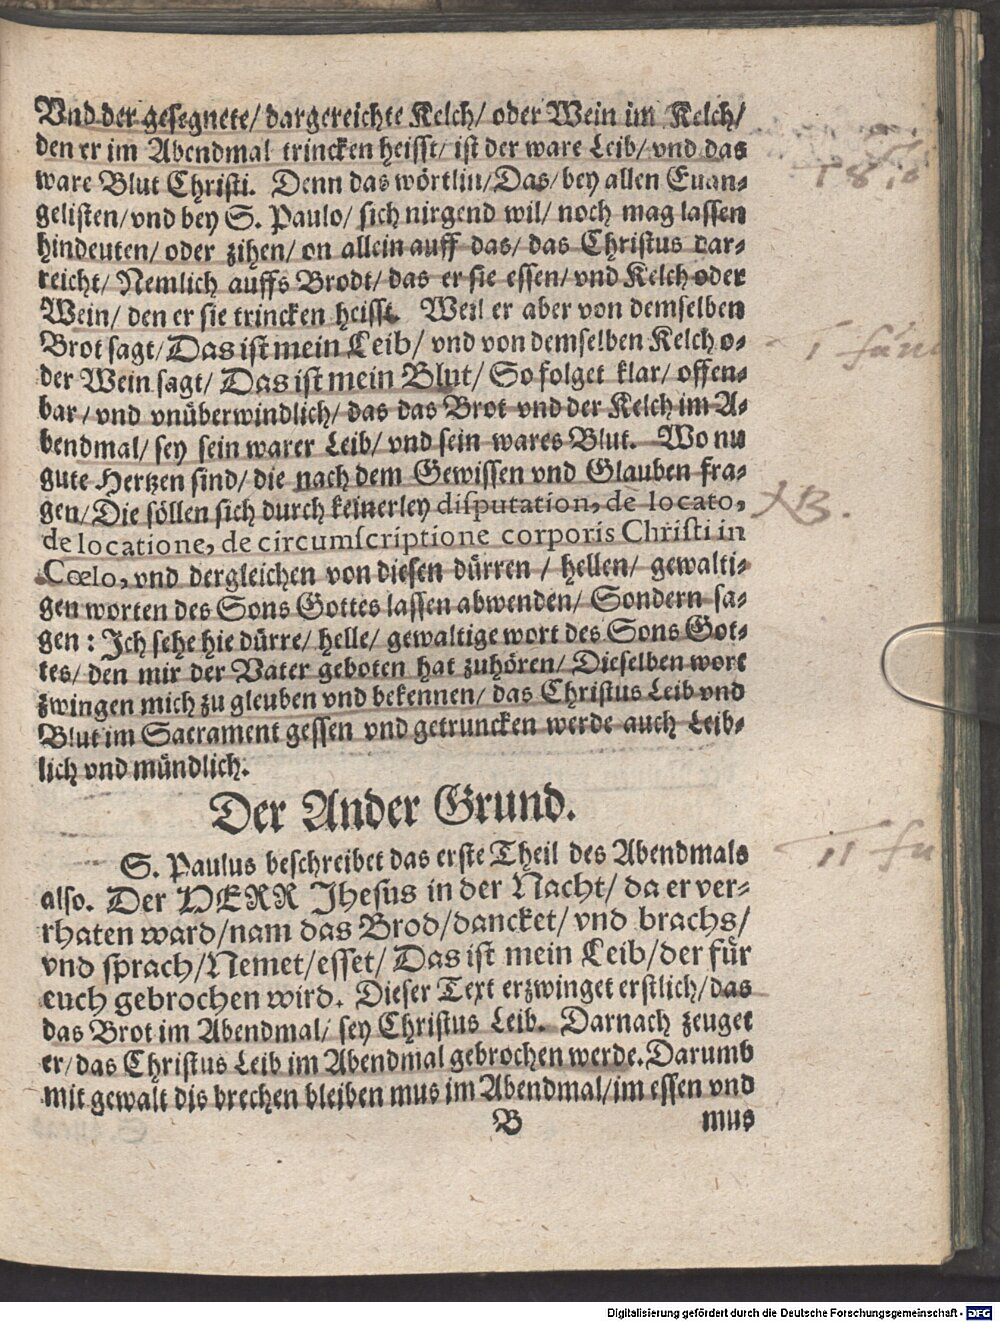 Vnd der gesegnete/ dargereichte Kelch/ oder Wein im Kelch/
den er im Abendmal trincken heisst/ ist der ware Leib/ vnd das
ware Blut Christi. Denn das wörtlin/ Das/ bey allen Euan-
gelisten/ vnd bey S. Paulo/ sich nirgend wil/ noch mag lassen
hindeuten/ oder zihen/ on allein auff das/ das Christus dar-
reicht/ Nemlich auffs Brodt/ das er sie essen/ vnd Kelch oder
Wein/ den er sie trincken heisst. Weil er aber von demselben
Brot sagt/ Das ist mein Leib/ vnd von demselben Kelch o-
der Wein sagt/ Das ist mein Blut/ So folget klar/ offen-
bar/ vnd vnüberwindlich/ das das Brot vnd der Kelch im A-
bendmal/ sey sein warer Leib/ vnd sein wares Blut. Wo nu
gute Hertzen sind/ die nach dem Gewissen vnd Glauben fra-
gen/ Die söllen sich durch keinerley disputation, de locato,
de locatione, de circumscriptione corporis Christi in
Cœlo, vnd dergleichen von diesen dürren/ hellen/ gewalti-
gen worten des Sons Gottes lassen abwenden/ Sondern sa-
gen: Ich sehe hie dürre/ helle/ gewaltige wort des Sons Got-
tes/ den mir der Vater geboten hat zuhören/ Dieselben wort
zwingen mich zu gleuben vnd bekennen/ das Christus Leib vnd
Blut im Sacrament gessen vnd getruncken werde auch Leib-
lich vnd mündlich.
Der Ander Grund.
S. Paulus beschreibet das erste Theil des Abendmals
also. Der HERR Jhesus in der Nacht/ da er ver-
rhaten ward/ nam das Brod/ dancket/ vnd brachs/
vnd sprach/ Nemet/ esset/ Das ist mein Leib/ der für
euch gebrochen wird. Dieser Text erzwinget erstlich/ das
das Brot im Abendmal/ sey Christus Leib. Darnach zeuget
er/ das Christus Leib im Abendmal gebrochen werde. Darumb
mit gewalt dis brechen bleiben mus im Abendmal/ im essen vnd
B mus
NB.
Digitalisierung gefördert durch die Deutsche Forschungsgemeinschaft - DFG